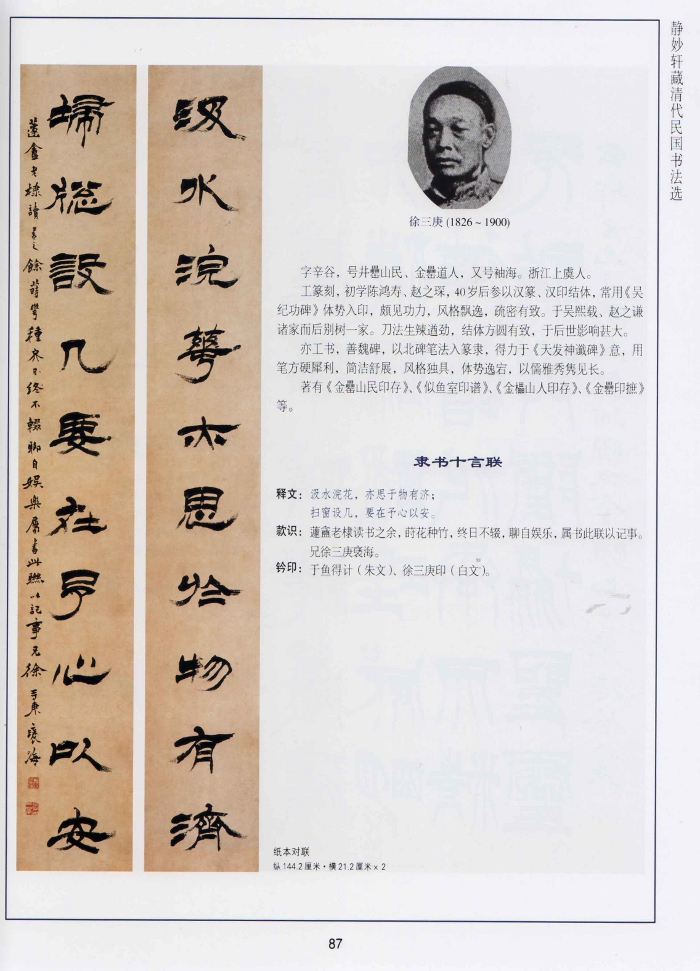 静妙轩藏清代民国书法选
徐三庚 (1826 ~ 1900)
字辛谷，号井罍山民、金罍道人，又号袖海。浙江上虞人。
工篆刻，初学陈鸿寿、赵之琛，40岁后参以汉篆、汉印结体，常用《吴
纪功碑》体势入印，颇见功力，风格飘逸，疏密有致。于吴熙载、赵之谦
诸家而后别树一家。刀法生辣遒劲，结体方圆有致，于后世影响甚大。
亦工书，善魏碑，以北碑笔法入篆隶，得力于《天发神谶碑》意，用
笔方硬犀利，简洁舒展，风格独具，体势逸宕，以儒雅秀隽见长。
著有《金罍山民印存》、《似鱼室印谱》、《金櫑山人印存》、《金罍印摭》
等。
隶书十言联
释文：汲水浣花，亦思于物有济；
扫窗设几，要在予心以安。
款识：蓮盦老棣读书之余，莳花种竹，终日不辍，聊自娱乐，属书此联以记事。
兄徐三庚褎海。
钤印：于鱼得计（朱文）、徐三庚印（白文）。
汲水浣華亦思於物有濟
埽牎設几要在予心以安
蓮盦老棣讀書之餘蒔華種竹日終不輟聊自娱樂属書此聯以記事兄徐三庚褎海
纸本对联
纵144.2厘米·横21.2厘米×2
87